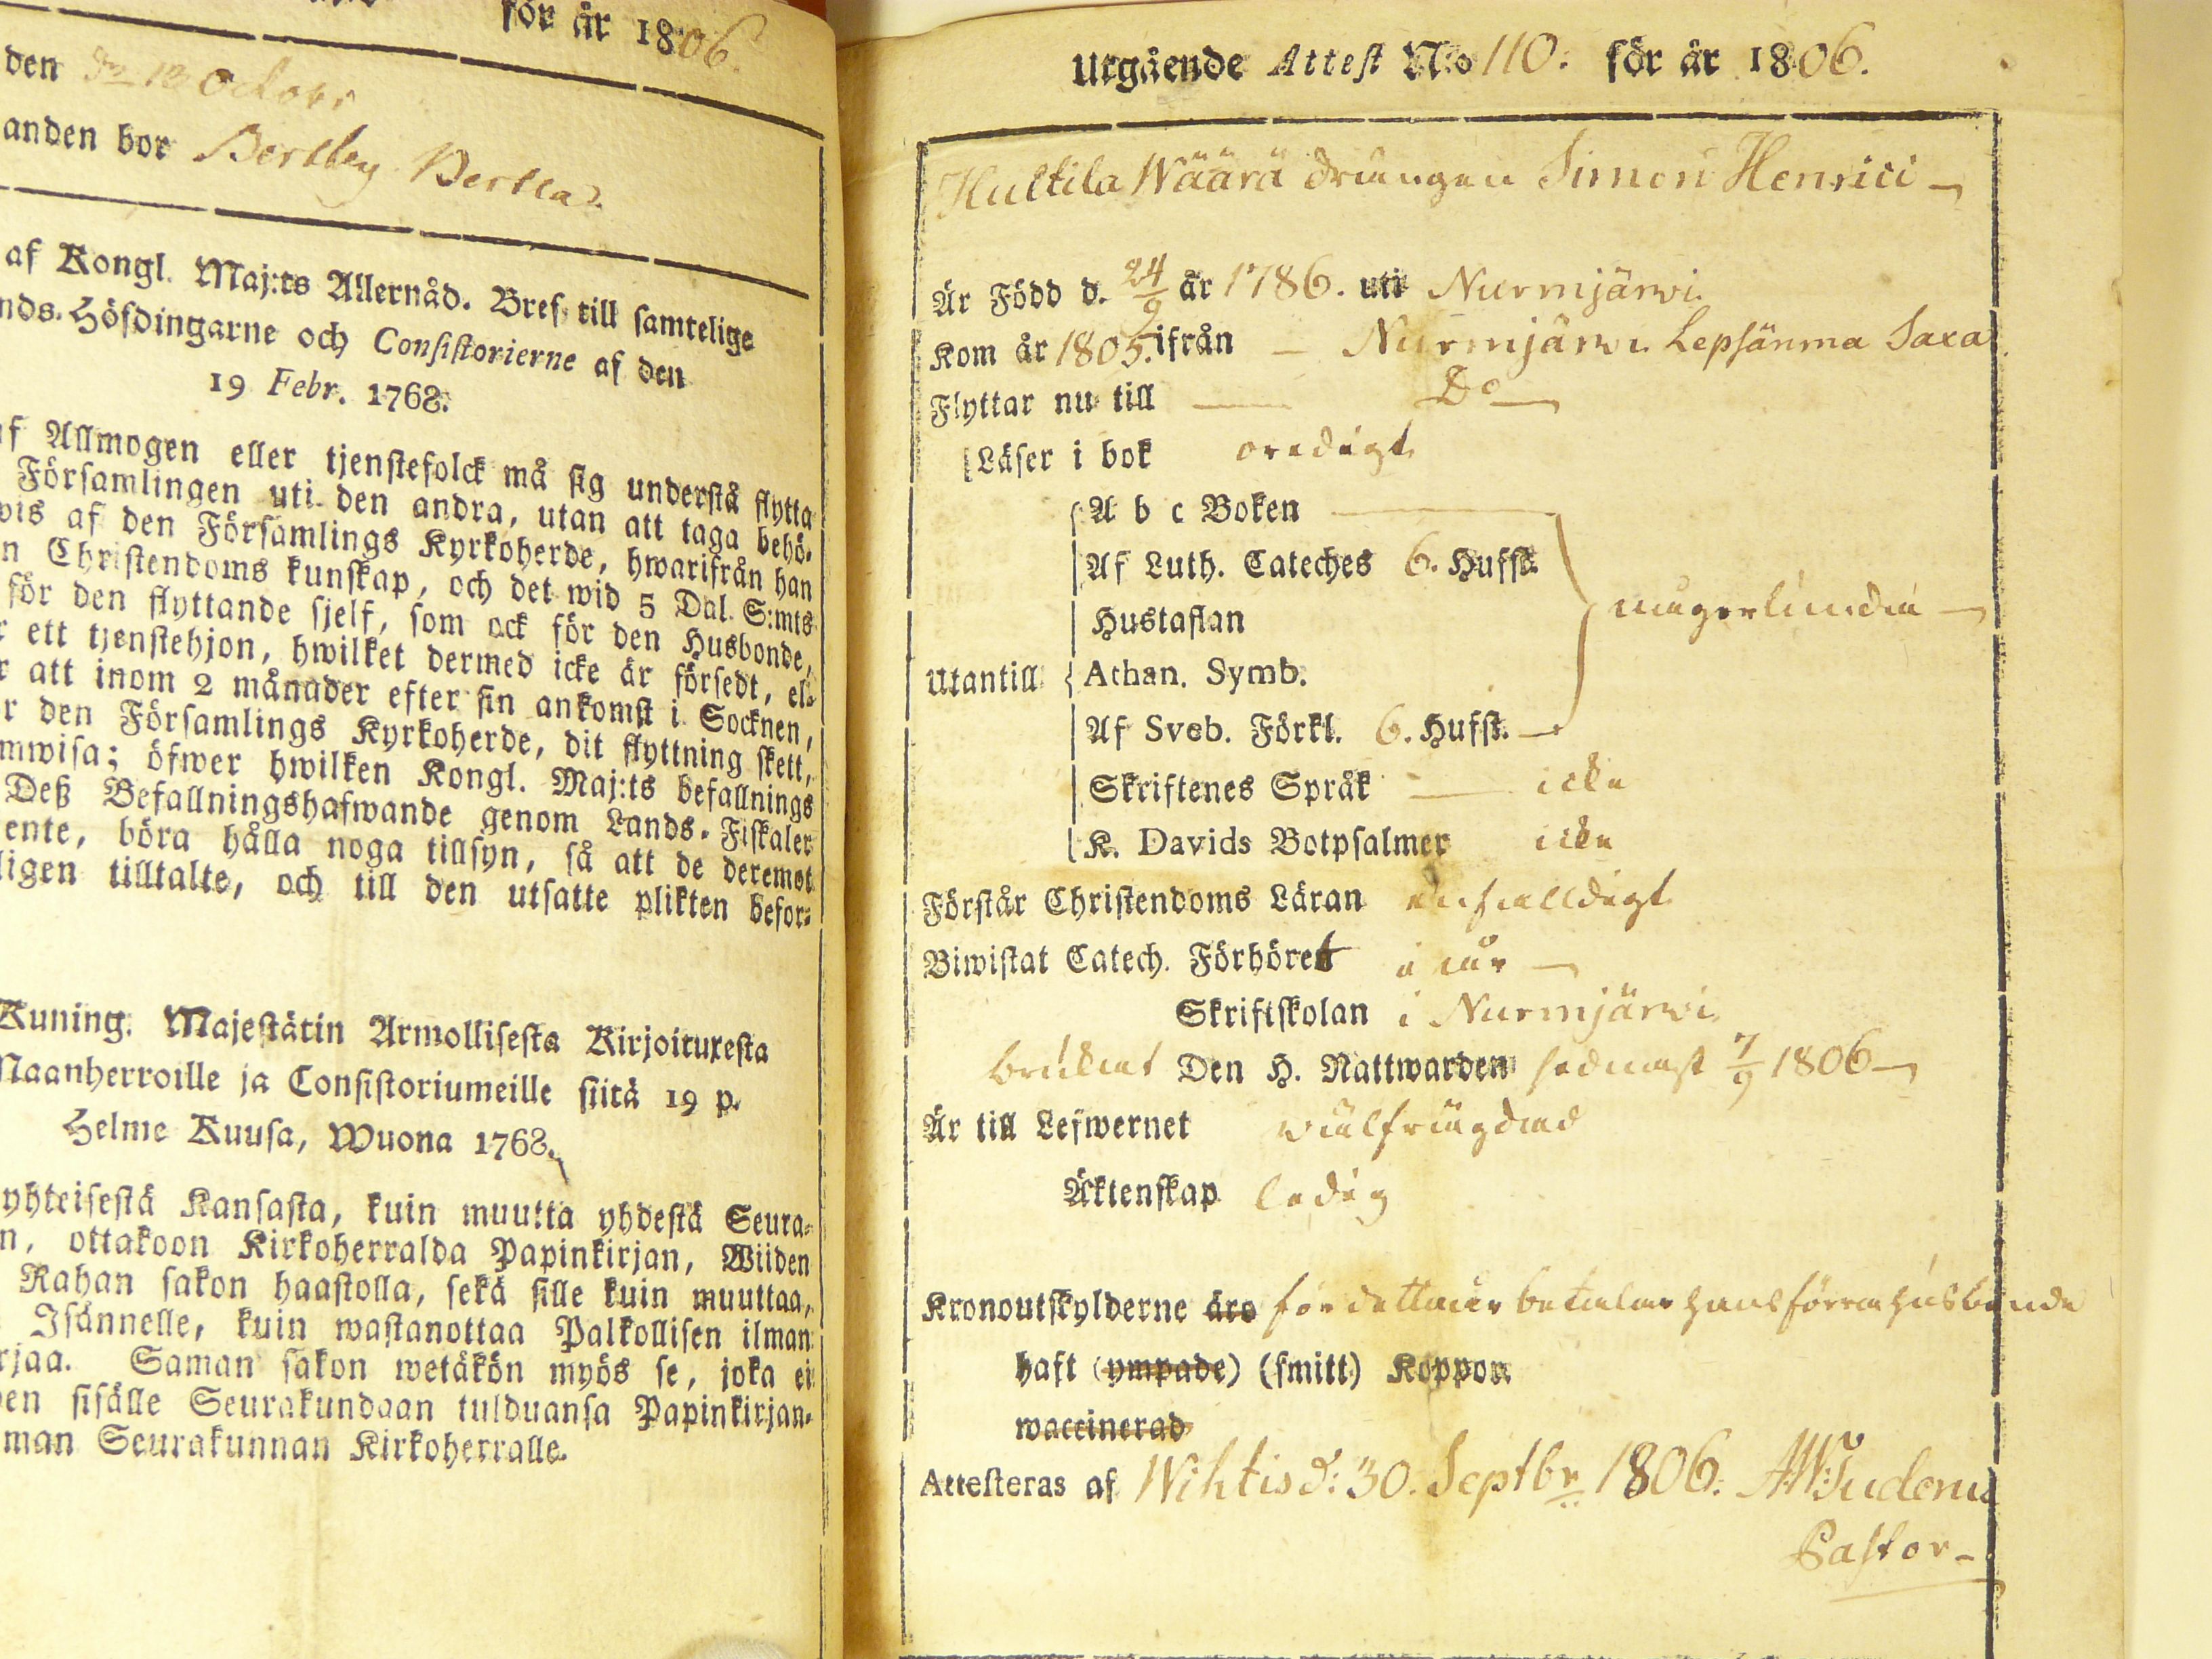 för år 1806.
den d 13 Octobr
anden bor Bertby Bertta
af Kongl. Maj:ts Allernåd. Bref till samtelige
nds-Höfdingarne och Consistorierne af den
19 Febr. 1768.
f Allmogen eller tjenstefolck må sig understå flytta
Församlingen uti den andra, utan att taga behö-
vis af den Församlings Kyrkoherde, hwarifrån han
n Christendoms kunskap, och det wid 5 Dal. S:mts
för den flyttande sjelf, som ock för den Husbonde,
r ett tjenstehjon, hwilket dermed icke är försedt, el-
r att inom 2 månader efter sin ankomst i Socknen,
r den Församlings Kyrkoherde, dit flyttning skett,
mwisa; öfwer hwilken Kongl. Maj:ts befallnings
Deß Befallningshafwande genom Lands-Fiskaler
ente, böra hålla noga tillsyn, så att de deremot
ligen tilltalte, och till den utsatte plikten befor-
Kuning. Majestätin Armollisesta Kirjoituxesta
Maanherroille ja Consistoriumeille siitä 19 p.
Helme Kuusa, Wuona 1768.
yhteisestä Kansasta, kuin muutta yhdestä Seura-
n, ottakoon Kirkoherralda Papinkirjan, Wiiden
Rahan sakon haastolla, sekä sille kuin muuttaa,
Isännelle, kuin wastanottaa Palkollisen ilman
rjaa. Saman sakon wetäkön myös se, joka ei
en sisälle Seurakundaan tulduansa Papinkirjan-
man Seurakunnan Kirkoherralle.
Utgående Attest N:o 110. för år 1806.
Hulttila Wäärä drängen Simon Henrici
Är Född d. 24/9 år 1786. uti Nurmjärwi.
Kom år 1805. ifrån — Nurmjärwi Lepsänma Saxa
Flyttar nu till — Do —
Läser i bok oredigt
A b c Boken
Af Luth. Cateches 6. Hufst.
Hustaflan
någorlunda
Utantill Athan. Symb.
Af Sveb. Förkl. 6. Hufst.
Skriftenes Språk — icke
K. Davids Botpsalmer icke
Förstår Christendoms Läran enfalldigt
Biwistat Catech. Förhöret i år
Skriftskolan i Nurmjärwi
brukat Den H. Nattwarden sednast 7/9 1806
Är till Lefwernet wälfrägdad
Äktenskap ledig
Kronoutskylderne äro för detta år betalar hans förra husbonde
haft (ympade) (smitt) Koppor
waccinerad
Attesteras af Wihtis d: 30. Septbr 1806. AWTuderu
Pastor